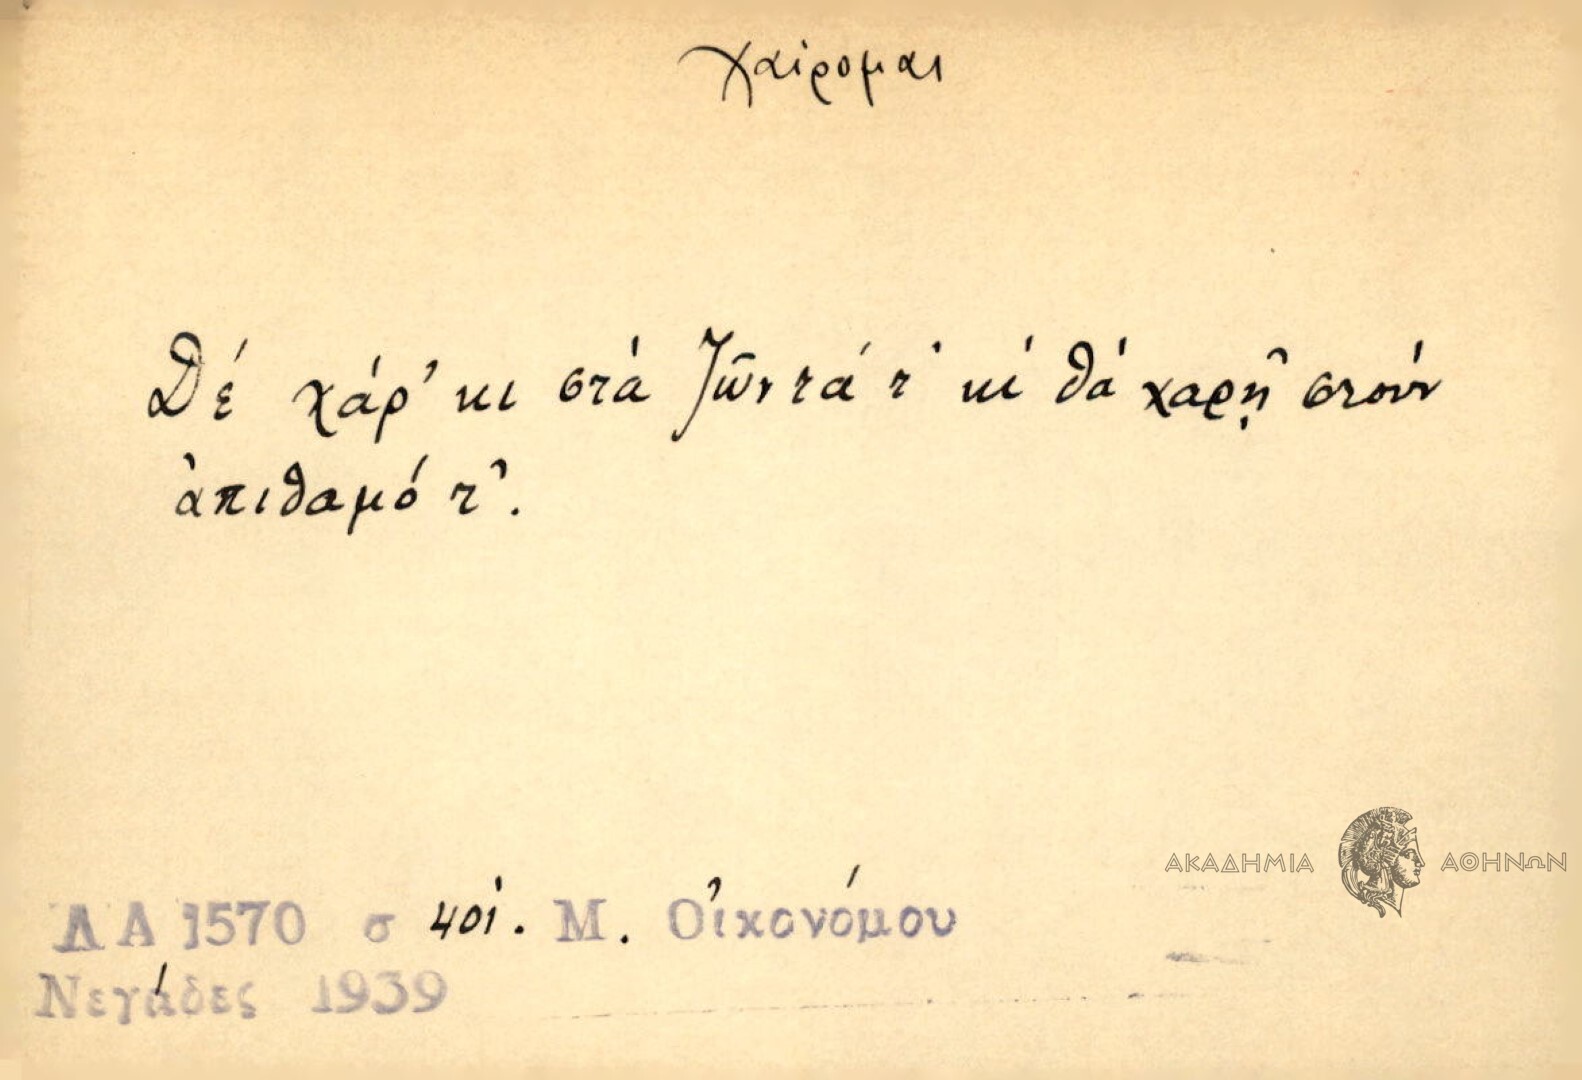 χαίρομαι
Δέ χάρ' κι στά ζῶντά τ' κι θά χαρῇ στούν
ἀπιθαμό τ'.
ΑΚΑΔΗΜΙΑ ΑΘΗΝΩΝ
ΛΑ 1570 σ 401. Μ. Οἰκονόμου
Νεγάδες 1939